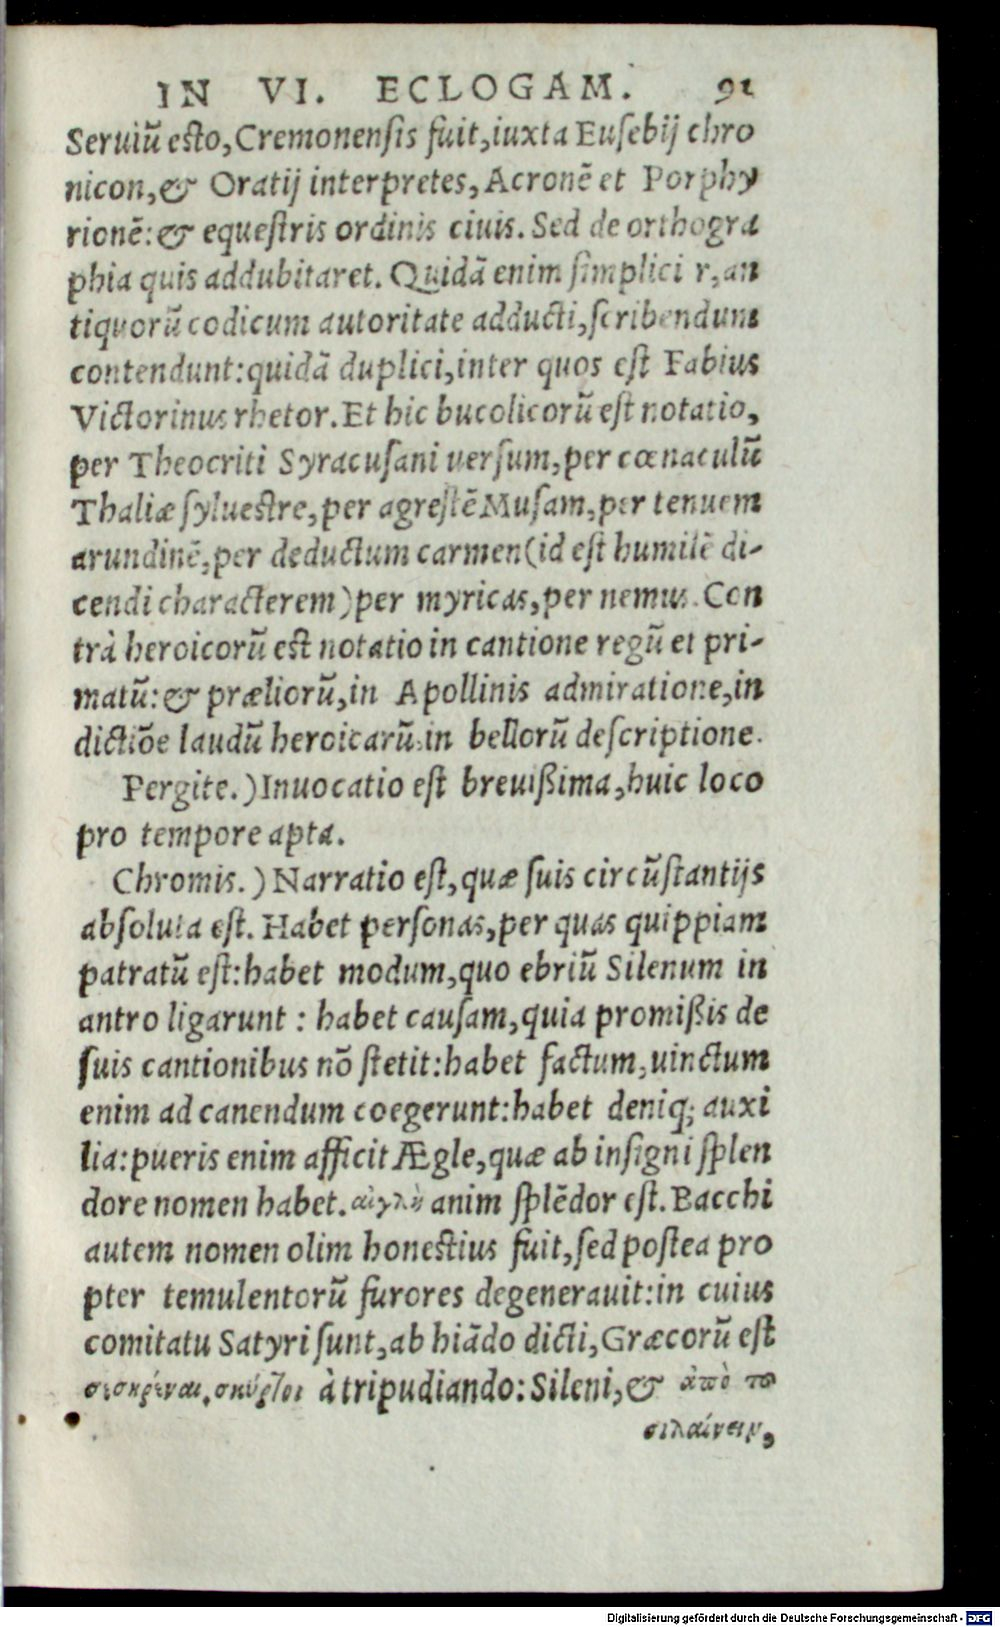 IN VI. ECLOGAM. 91
Seruiũ esto, Cremonensis fuit, iuxta Eusebij chro
nicon, & Oratij interpretes, Acronẽ et Porphy
rionẽ: & equestris ordinis ciuis. Sed de orthogra
phia quis addubitaret. Quidã enim simplici r, an
tiquorũ codicum autoritate adducti, scribendum
contendunt: quidã duplici, inter quos est Fabius
Victorinus rhetor. Et hic bucolicorũ est notatio,
per Theocriti Syracusani uersum, per cœnaculũ
Thaliæ syluestre, per agrestẽ Musam, per tenuem
arundinẽ, per deductum carmen (id est humilẽ di-
cendi characterem) per myricas, per nemus. Con
trà heroicorũ est notatio in cantione regũ et pri-
matũ: & præliorũ, in Apollinis admiratione, in
dictiõe laudũ heroicarũ: in bellorũ descriptione.
Pergite.) Inuocatio est breuißima, huic loco
pro tempore apta.
Chromis.) Narratio est, quæ suis circũstantijs
absoluta est. Habet personas, per quas quippiam
patratũ est: habet modum, quo ebriũ Silenum in
antro ligarunt : habet causam, quia promißis de
suis cantionibus nõ stetit: habet factum, uinctum
enim ad canendum coegerunt: habet deniq; auxi
lia: pueris enim afficit Ægle, quæ ab insigni splen
dore nomen habet. αἰγλὴ anim splẽdor est. Bacchi
autem nomen olim honestius fuit, sed postea pro
pter temulentorũ furores degenerauit: in cuius
comitatu Satyri sunt, ab hiãdo dicti, Græcorũ est
à tripudiando: Sileni, & ἀπὸ το
σιλαίνειν,
Digitalisierung gefördert durch die Deutsche Forschungsgemeinschaft - DFG